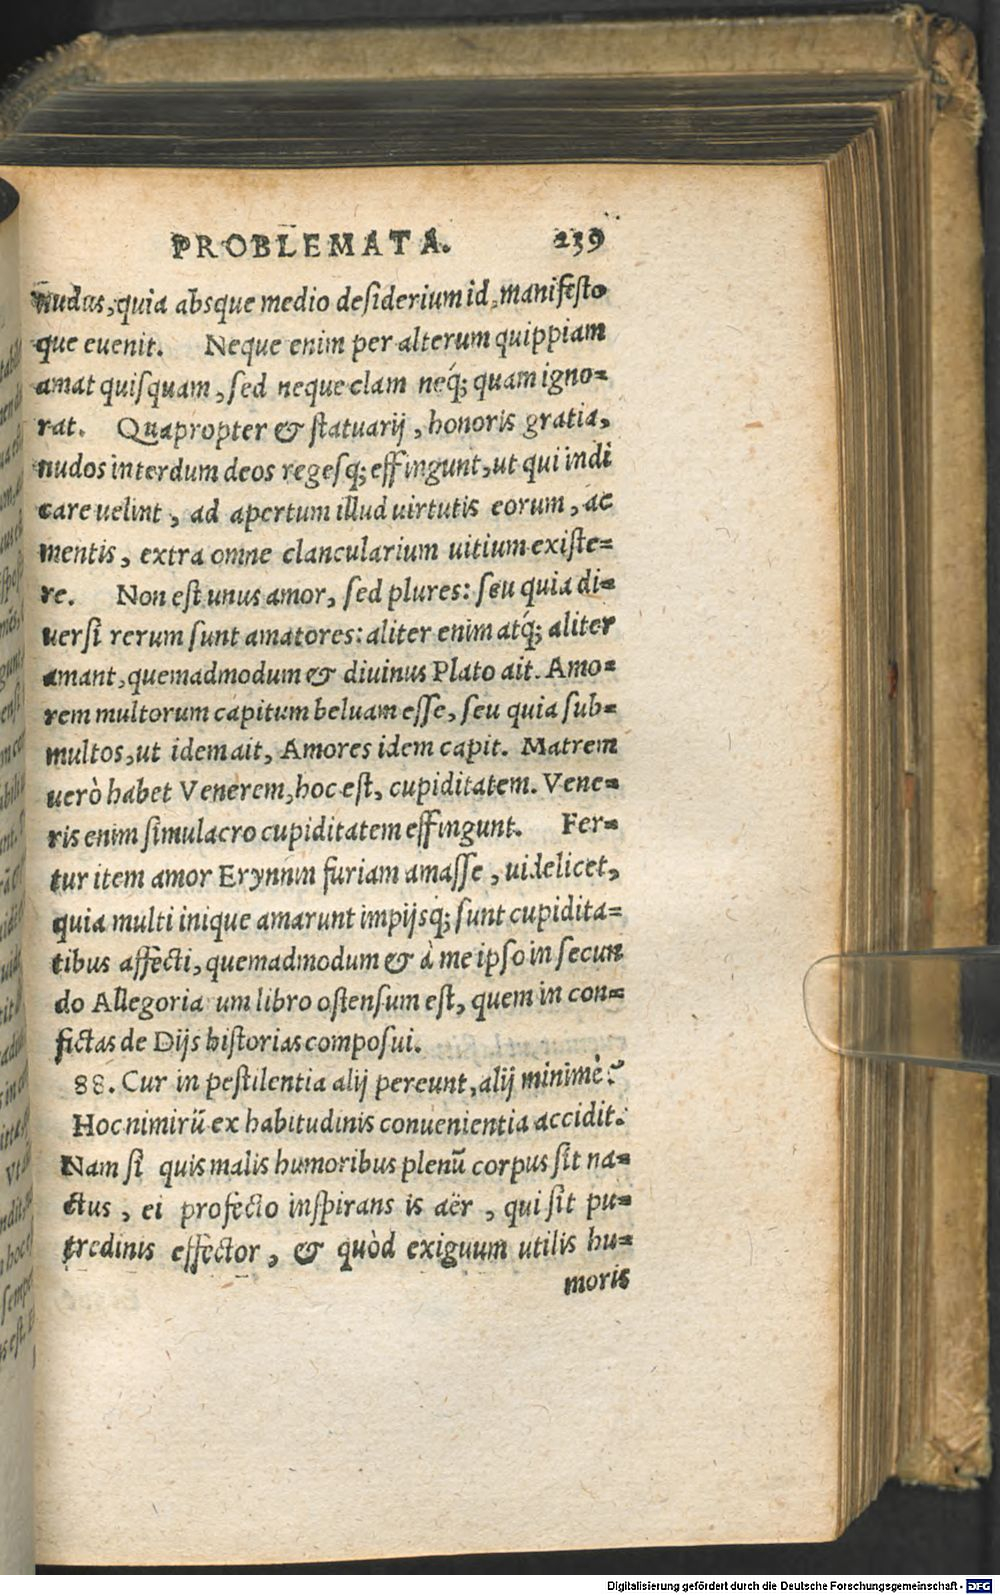 PROBLEMATA. 239
nudus, quia absque medio desiderium id, manifesto
que euenit. Neque enim per alterum quippiam
amat quisquam, sed neque clam neq́; quam igno-
rat. Quapropter & statuarij, honoris gratia,
nudos interdum deos regesq; effingunt, ut qui indi
care uelint, ad apertum illud uirtutis eorum, ac
mentis, extra omne clancularium uitium existe-
re. Non est unus amor, sed plures: seu quia di-
uersi rerum sunt amatores: aliter enim atq́; aliter
amant, quemadmodum & diuinus Plato ait. Amo-
rem multorum capitum beluam esse, seu quia sub-
multos, ut idem ait, Amores idem capit. Matrem
uerò habet Venerem, hoc est, cupiditatem. Vene-
ris enim simulacro cupiditatem effingunt. Fer-
tur item amor Erynnin furiam amasse, uidelicet,
quia multi inique amarunt impijsq́; sunt cupidita-
tibus affecti, quemadmodum & à me ipso in secun
do Allegoria um libro ostensum est, quem in con-
fictas de Dijs historias composui.
88. Cur in pestilentia alij pereunt, alij minimè?
Hoc nimirū ex habitudinis conuenientia accidit.
Nam si quis malis humoribus plenū corpus sit na-
ctus, ei profecto inspirans is aër, qui sit pu-
tredinis effector, & quòd exiguum utilis hu-
moris
Digitalisierung gefördert durch die Deutsche Forschungsgemeinschaft - DFG